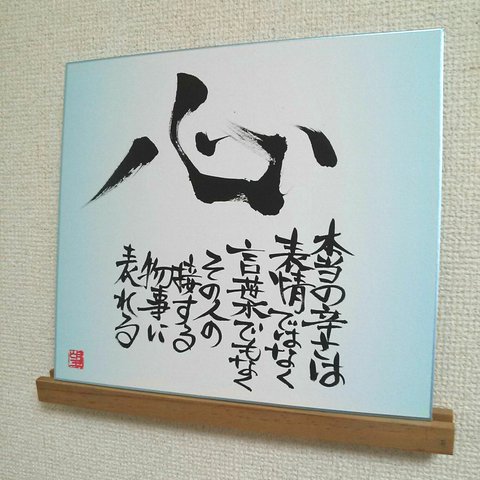 心
本当の辛さは
表情ではなく
言葉でもなく
その人の
接する
物事に
表れる